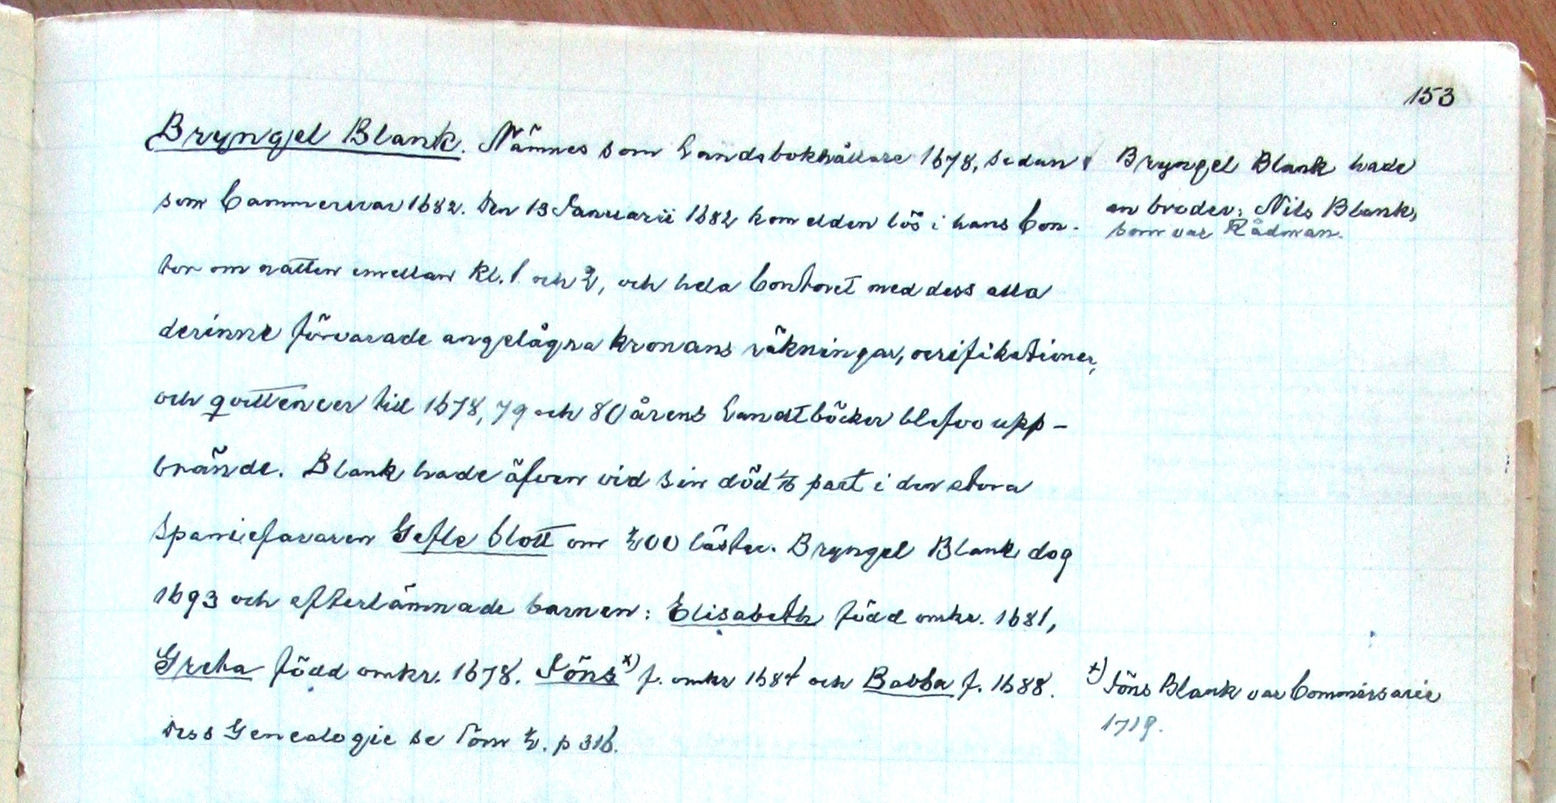 153
Bryngel Blank. Nämnes som Landsbokhållare 1678, sedan
som Cammererar 1682. Den 13 Januarii 1682 kom elden lös i hans Con-
tor om natten emellan Kl. 1 och 2, och hela Contoret med dess alla
derinne förvarade angelågna kronans räkningar, verifikationer,
och qvittencer till 1678, 79 och 80 årens Landtböcker blefvo upp-
brände. Blank hade äfven vid sin död part i den stora
Spaniefararen Gefle Slott om 200 läster. Bryngel Blank dog
1693 och efterlämnade barnen: Elisabeth född omkr. 1681,
Greta född omkr. 1678. Jöns x) f. omkr 1684 och Babba f. 1688.
Dess Genealogie se Tom 2. p 316.
Bryngel Blank hade
en broder, Nils Blank,
som var Rådman.
x) Jöns Blank var Commissarie
1719.